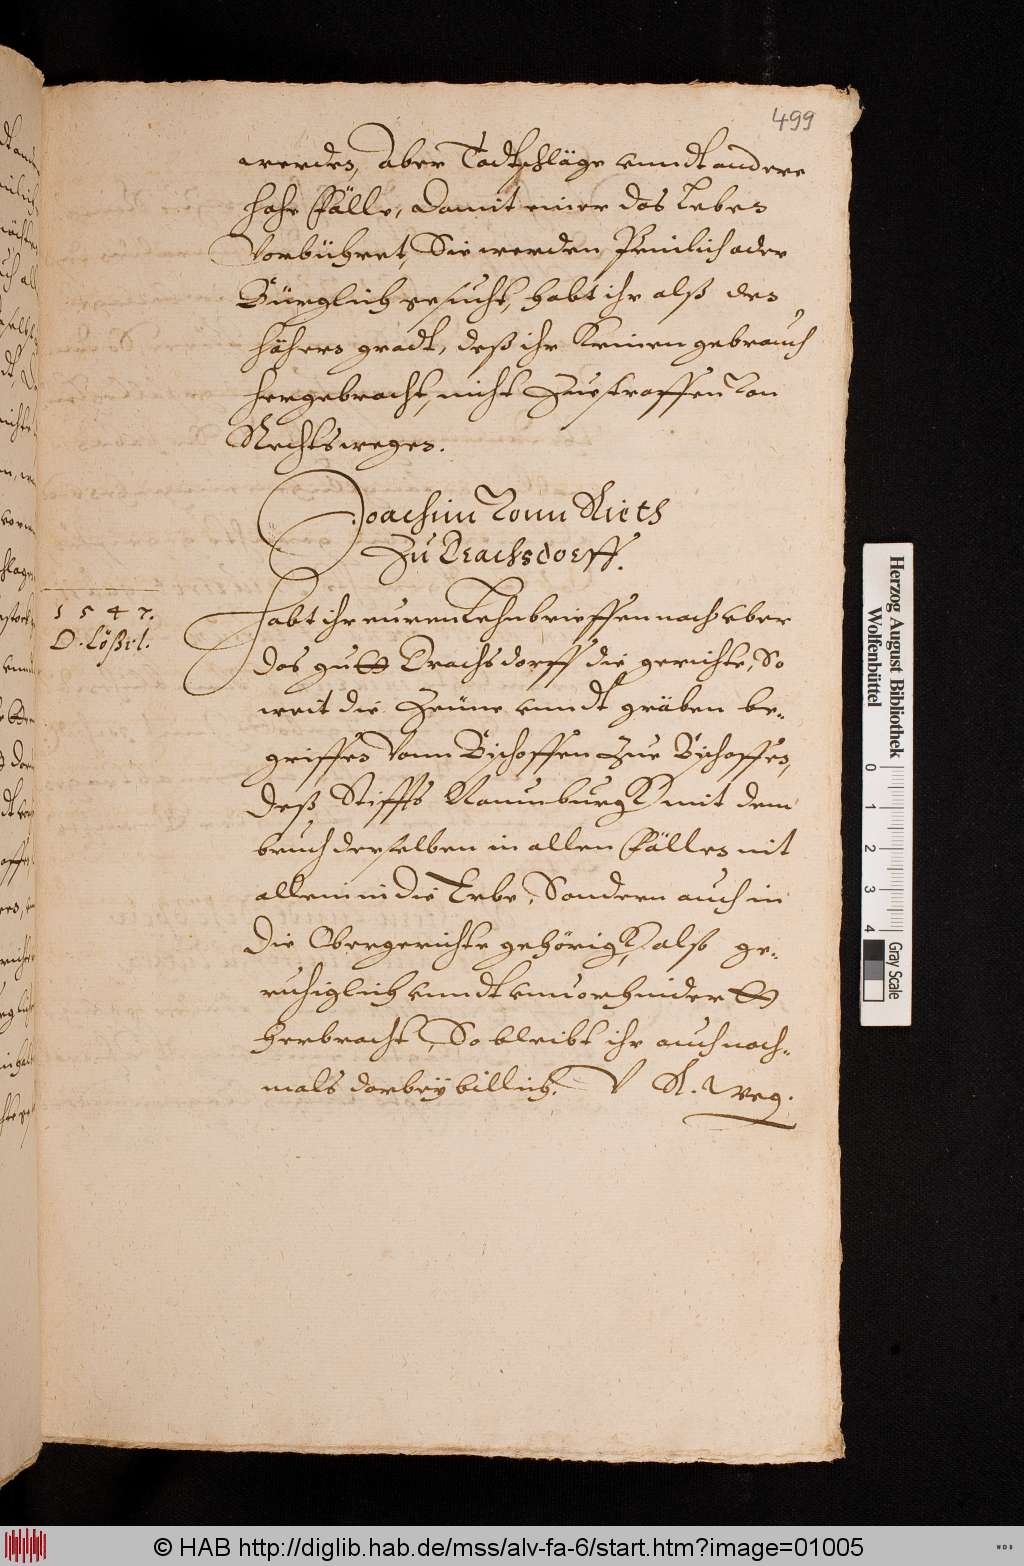 499
werden, aber Todtschläge unndt andere
hohe Fälle, damit einer das Leben
Vorbühret, Sie werden Peinlich oder
Bürglich gesucht, habt ihr alß des
höhern gradt, deß ihr Keinen gebrauch
hergebracht, nicht Zuestraffen Von
Rechtswegen.
Joachim Vonn Rieth
Zu Drachsdorff.
1547.
D. Lößel.
Habt ihr euren Lehnbrieffen nach uber
das gutt Drachsdorff die gerichte, So
weit die Zeüne unndt gräben be-
griffen Vonn Bischoffen Zue Bischoffen,
deß Stiffts Naumburgk mit dem
bruch derselben in allen Fällen nit
allein in die Erbe, Sondern auch in
die Obergerichte gehörigk, also ge-
ruhiglich unndt unuorhindertt
herbracht, So bleibt ihr auch noch-
mals darbey billich. V R. Weg.
Herzog August Bibliothek
Wolfenbüttel
0 1 2 3 4
Gray Scale
© HAB http://diglib.hab.de/mss/alv-fa-6/start.htm?image=01005
WDB